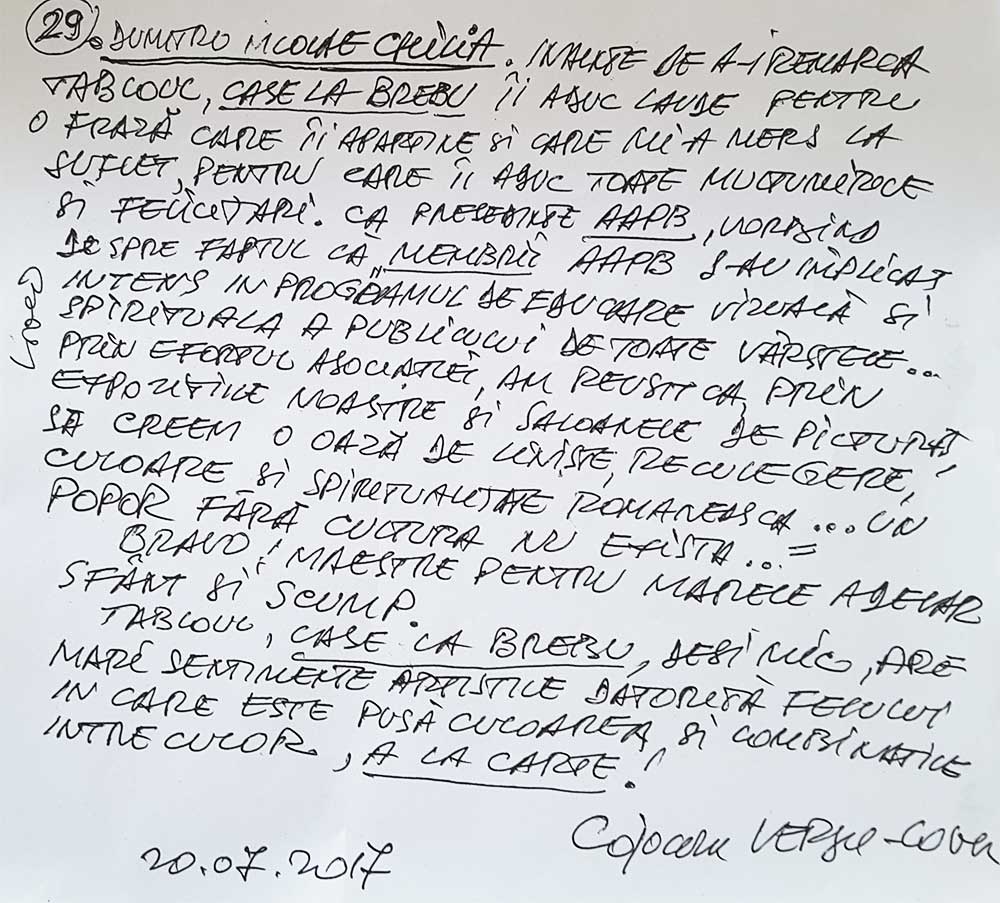 29. DUMITRU NICOLAE CHILIA. INAINTE DE A-I REMARCA
TABLOUL, CASE LA BREBU ÎI ADUC LAUDE PENTRU
O FRAZĂ CARE ÎI APARȚINE SI CARE MI-A MERS LA
SUFLET, PENTRU CARE ÎI ADUC TOATE MULTUMIRILE
SI FELICITARI. CA PRESEDINTE AAPB, VORBIND
DESPRE FAPTUL CĂ "MEMBRII AAPB S-AU IMPLICAT
INTENS IN PROGRAMUL DE EDUCARE VIZUALĂ SI
SPIRITUALA A PUBLICULUI DE TOATE VÂRSTELE...
PRIN EFORTUL ASOCIATIEI, AM REUSIT CA PRIN
EXPOZITIILE NOASTRE SI SALOANELE DE PICTURĂ,
SĂ CREEM O OAZĂ DE LINISTE, RECULEGERE,
CULOARE SI SPIRITUALITATE ROMANEASCA... UN
POPOR FĂRĂ CULTURA NU EXISTA... =
BRAVO! MAESTRE PENTRU MARELE ADEVAR
SFÂNT SI SCUMP.
TABLOUL, CASE LA BREBU, DESI MIC, ARE
MARI SENTIMENTE ARTISTICE DATORITĂ FELULUI
IN CARE ESTE PUSĂ CULOAREA SI COMBINATIILE
INTRE CULORI, A LA CARTE!
20.07.2017
Cojocaru VERGIL-COVER